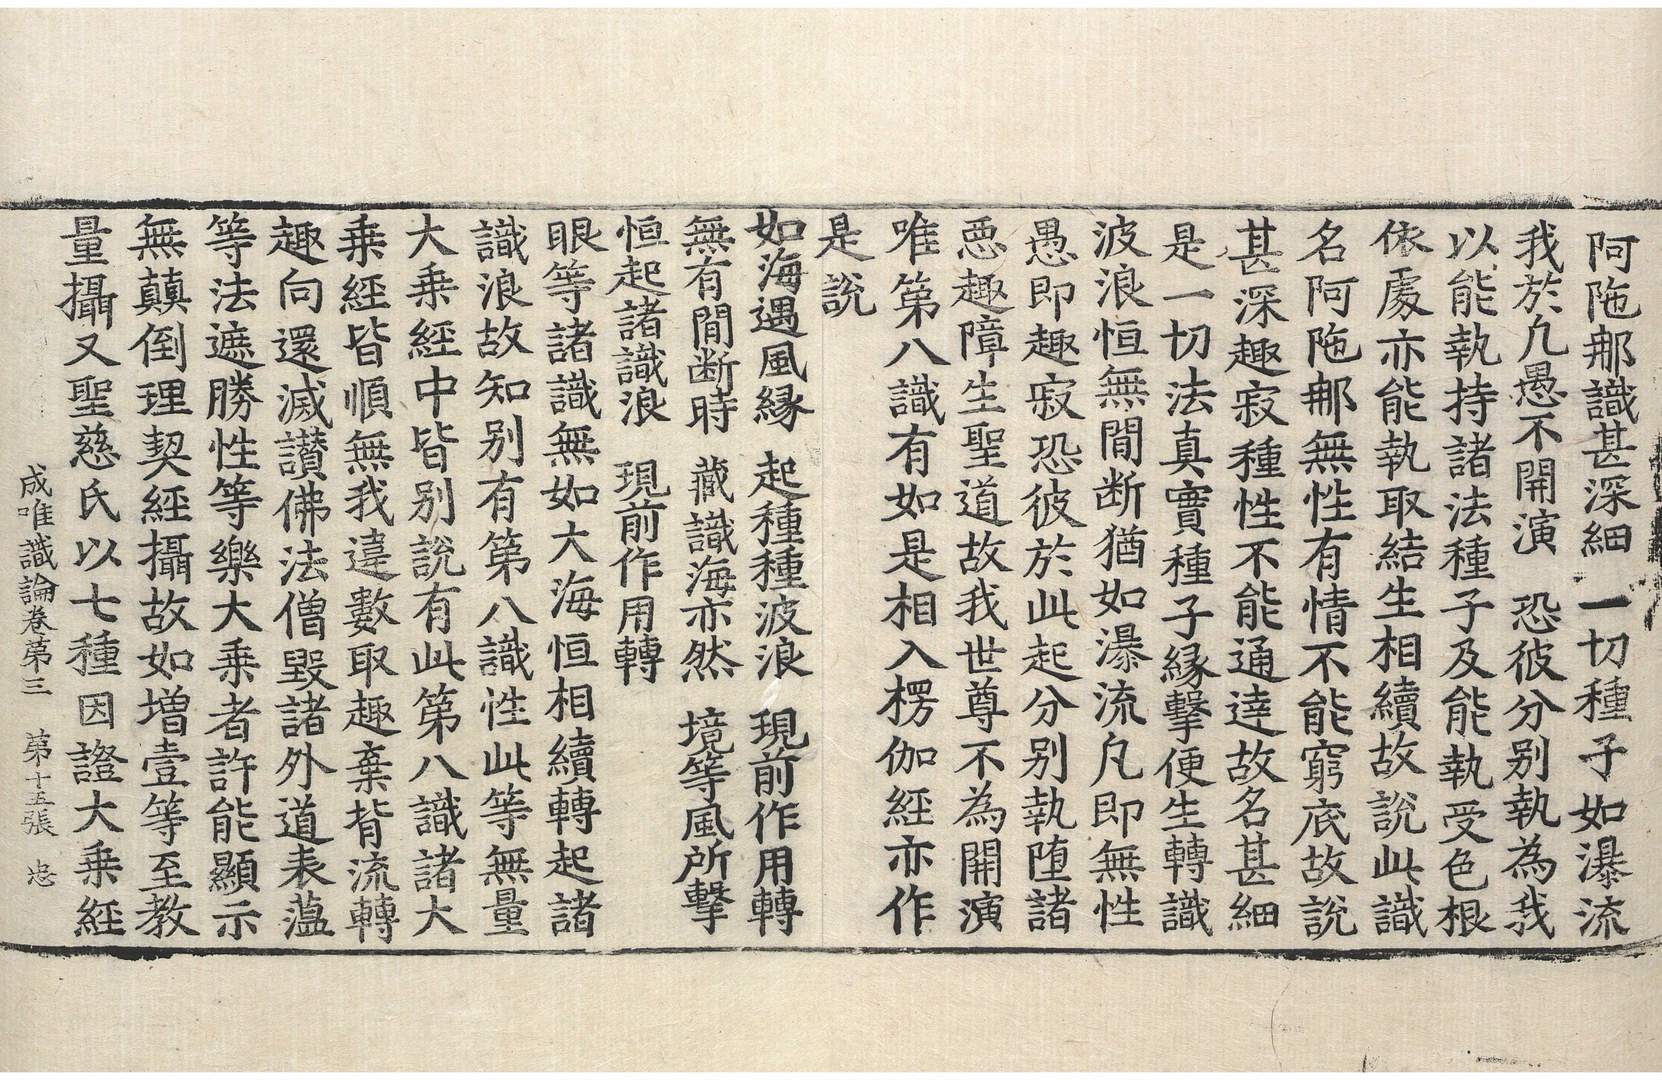 阿陁那識甚深細　一切種子如瀑流
我於凢愚不開演　恐彼分別執為我
以能執持諸法種子及能執受色根
依處亦能執取結生相續故說此識
名阿陁那無性有情不能窮底故說
甚深趣寂種性不能通達故名甚細
是一切法真實種子縁擊便生轉識
波浪恒無閒断猶如瀑流凡即無性
愚即趣寂恐彼於此起分別執堕諸
惡趣障生聖道故我世尊不為開演
唯第八識有如是相入楞伽經亦作
是說
如海遇風縁　起種種波浪　現前作用轉
無有閒断時　藏識海亦然　境等風所擊
恒起諸識浪　現前作用轉
眼等諸識無如大海恒相續轉起諸
識浪故知別有第八識性此等無量
大乗經中皆別說有此第八識諸大
乗經皆順無我違數取趣棄背流轉
趣向還滅讃佛法僧毀諸外道表蘊
等法遮勝性等樂大乗者許能顯示
無顛倒理契經攝故如增壹等至教
量攝又聖慈氏以七種因證大乗經
成唯識論卷第三　第十五張　忠